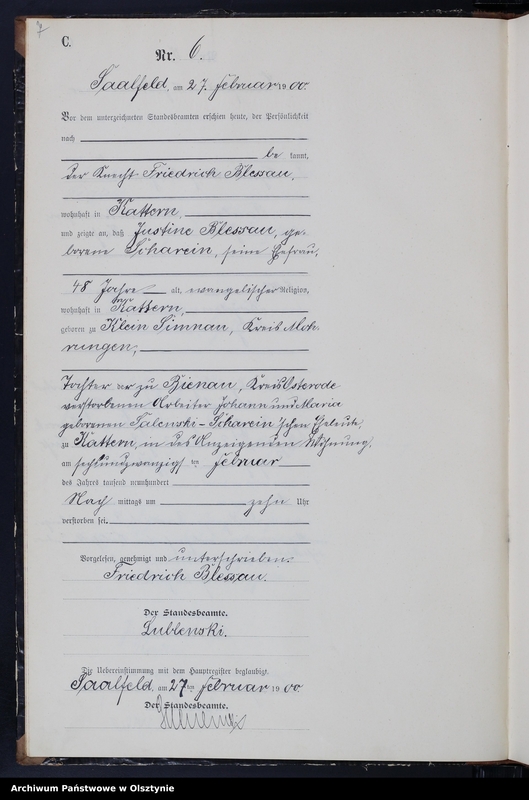 7
C.
Nr. 6.
Saalfeld, am 27. Februar 1900.
Vor dem unterzeichneten Standesbeamten erschien heute, der Persönlichkeit
nach
be kannt,
der Knecht Friedrich Blessau,
wohnhaft in Kattern,
und zeigte an, daß Justine Blessau, ge-
borene Scharein, seine Ehefrau,
48 Jahre alt, evangelischer Religion,
wohnhaft in Kattern,
geboren zu Klein Simnau, Kreis Moh-
rungen,
Tochter der zu Bienau, Kreis Osterode
verstorbenen Arbeiter Johann und Maria
geborenen Salewski-Scharein'schen Eheleute,
zu Kattern, in des Anzeigenden Wohnung,
am sechsundzwanzigsten Februar
des Jahres tausend neunhundert
Nach mittags um zehn Uhr
verstorben sei.
Vorgelesen, genehmigt und unterschrieben.
Friedrich Blessau.
Der Standesbeamte.
Dublewski.
Die Uebereinstimmung mit dem Hauptregister beglaubigt.
Saalfeld, am 27ten Februar 1900
Der Standesbeamte.
Archiwum Państwowe w Olsztynie